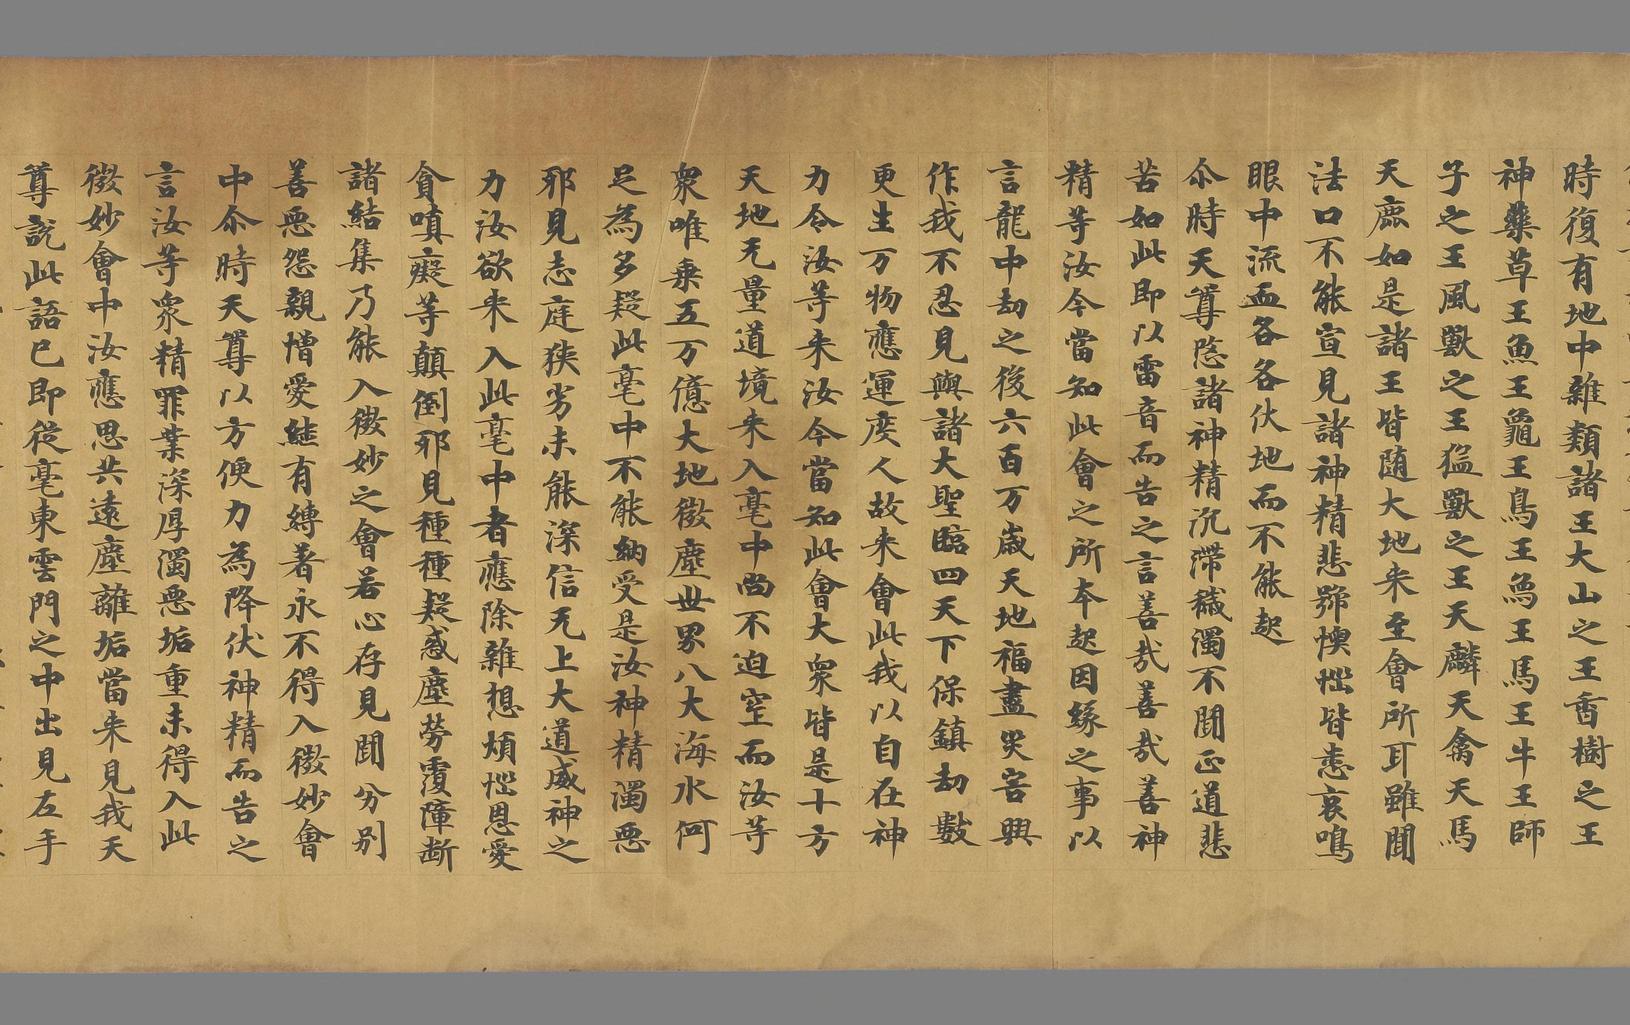 時復有地中雜類諸王大山之王香樹之王
神藥草王魚王龜王鳥王鳥王馬王牛王師
子之王風獸之王猛獸之王天麟天禽天馬
天鹿如是諸王皆随大地来至會所耳雖聞
法口不能宣見諸神精悲號懊惱皆悉哀鳴
眼中流血各各伏地而不能起
尒時天尊愍諸神精沉滯穢濁不聞正道悲
苦如此即以雷音而告之言善哉善哉善神
精等汝今當知此會之所本起因緣之事以
言龍中劫之後六百万歲天地福盡灾害興
作我不忍見與諸大聖臨四天下保鎮劫數
更生万物應運度人故来會此我以自在神
力令汝等来汝今當知此會大衆皆是十方
天地无量道境来入毫中尚不迫窄而汝等
衆唯乘五万億大地微塵世界八大海水何
足為多疑此毫中不能納受是汝神精濁惡
邪見志庭狹劣未能深信无上大道威神之
力汝欲来入此毫中者應除雜想煩惱恩愛
貪嗔癡等顛倒邪見種種疑惑塵勞覆障斷
諸結集乃能入微妙之會若心存見聞分別
善惡怨親憎愛繼有縛著永不得入微妙會
中尒時天尊以方便力為降伏神精而告之
言汝等衆精罪業深厚濁惡垢重未得入此
微妙會中汝應思共遠塵離垢當来見我天
尊說此語已即從毫東雲門之中出見左手